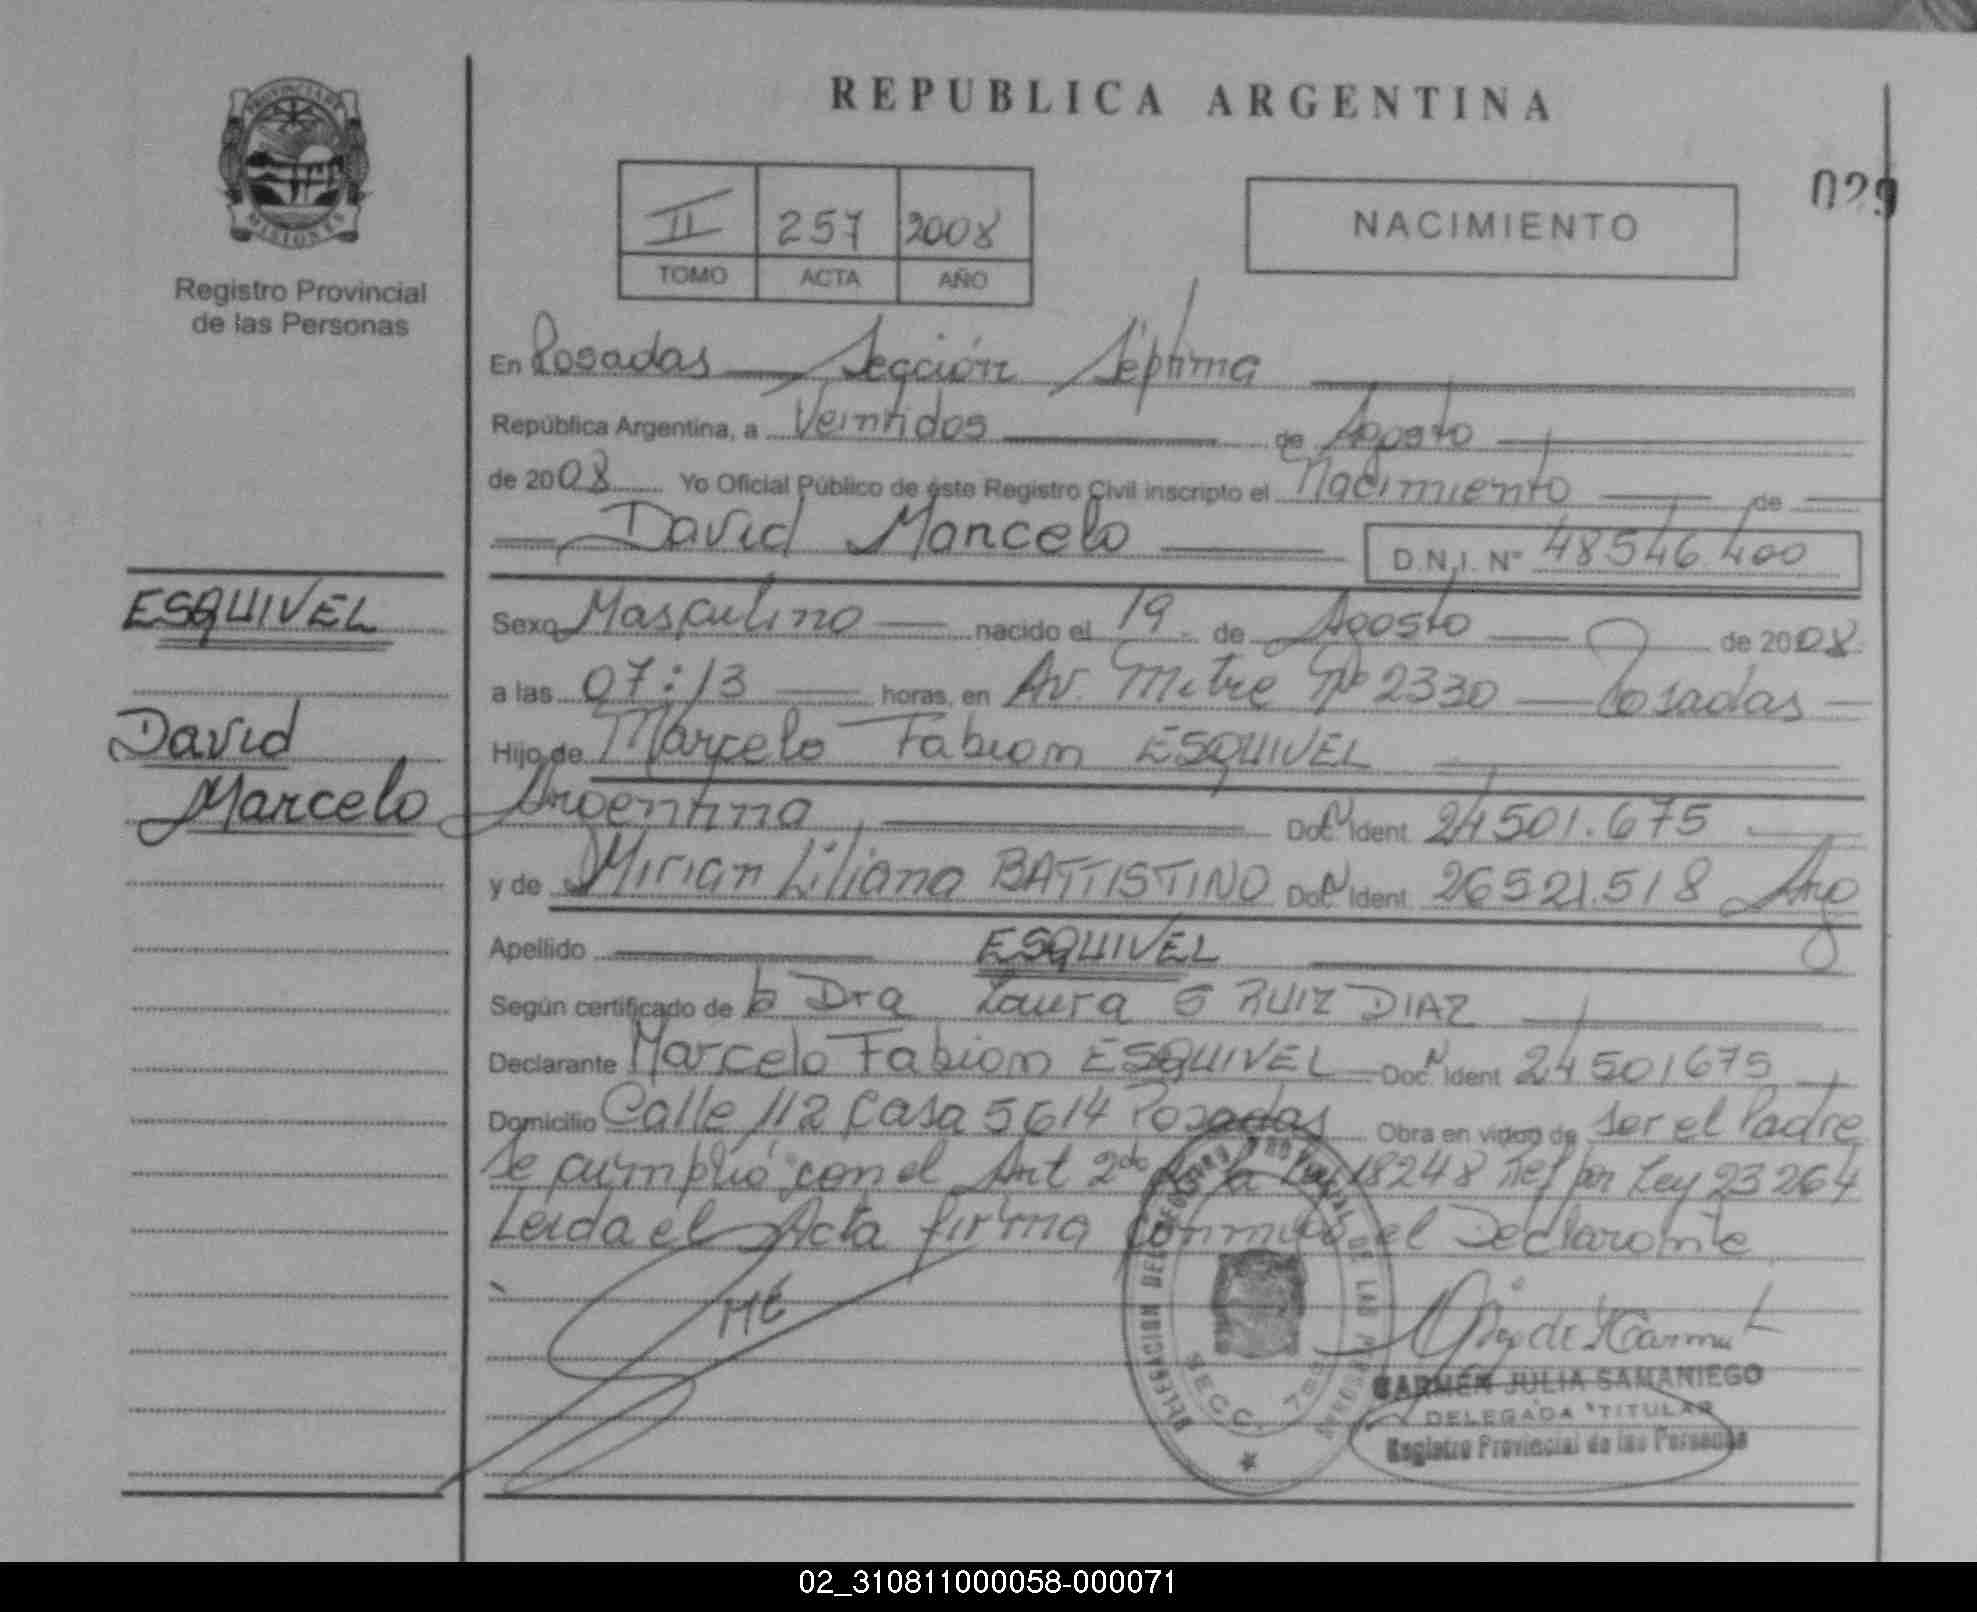 REPUBLICA ARGENTINA
PROVINCIA DE
MISIONES
Registro Provincial
de las Personas
II 257 2008
TOMO ACTA AÑO
NACIMIENTO
029
En Posadas Sección Séptima
República Argentina, a Veintidos de Agosto
de 2008 Yo Oficial Público de éste Registro Civil inscripto el Nacimiento de
David Marcelo D.N.I. Nº 48546.400
ESQUIVEL
David
Marcelo
Sexo Masculino nacido el 19 de Agosto de 2008
a las 07:13 horas, en Av. Mitre Nº 2330 Posadas
Hijo de Marcelo Fabian ESQUIVEL
Argentina Doc. N Ident 24501.675
y de Mirian Liliana BATTISTINO Doc. N Ident 26521.518 Arg
Apellido ESQUIVEL
Según certificado de la Dra Laura G RUIZ DIAZ
Declarante Marcelo Fabian ESQUIVEL Doc. N Ident 24501675
Domicilio Calle 112 Casa 5614 Posadas Obra en virtud de ser el Padre
Se cumplió con el Art 2do de la Ley 18248 Ref por Ley 23264
Leida el Acta firma conmigo el Declarante
DELEGACION DEL REGISTRO PROVINCIAL DE LAS PERSONAS
SECC. 7ma
CARMEN JULIA SAMANIEGO
DELEGADA TITULAR
Registro Provincial de las Personas
02_310811000058-000071